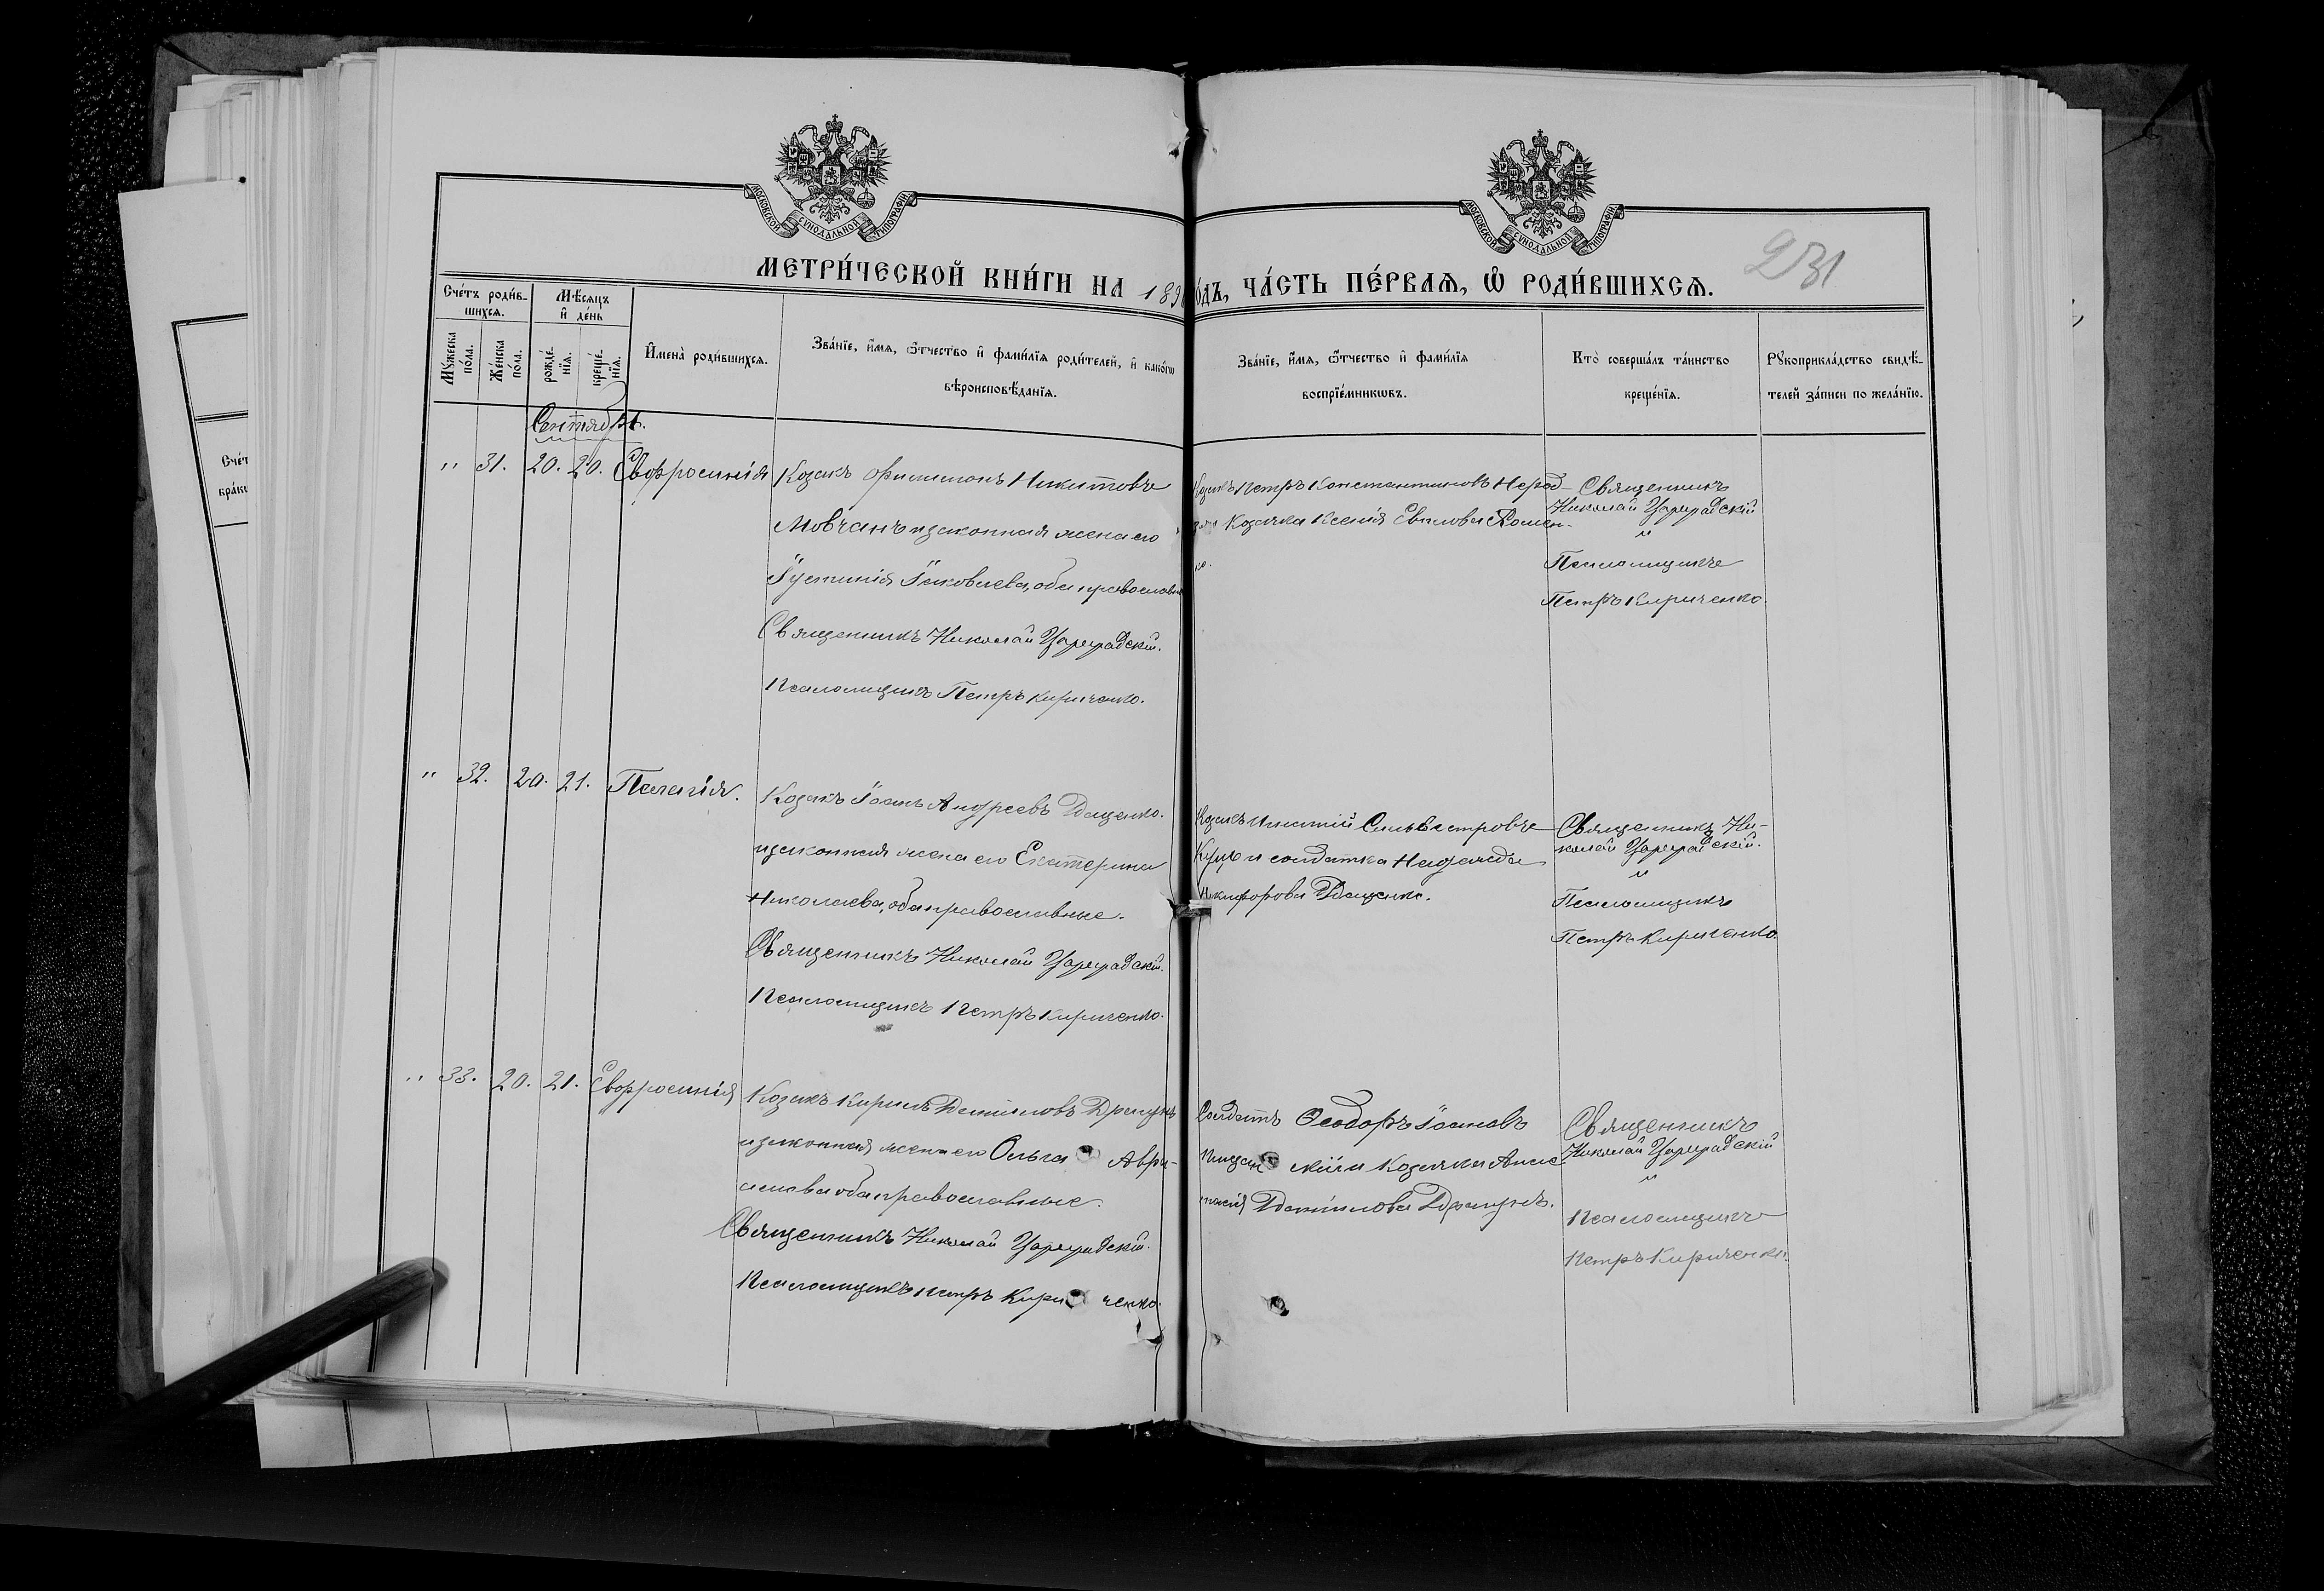 МОСКОВСКОЙ СУНОДАЛЬНОЙ ТИПОГРАФІИ
МОСКОВСКОЙ СУНОДАЛЬНОЙ ТИПОГРАФІИ
МЕТРИ́ЧЕСКОЙ КНИ́ГИ НА 189
О́ДЪ, ЧА́СТЬ ПЕ́РВАѦ, Ѡ҆ РОДИ́ВШИХСѦ.
231
Сче́тъ роди́в-
шихсѧ.
Мѣ́сѧцъ
и҆ де́нь
Мꙋ́жеска
по́ла.
Же́нска
по́ла.
рожде́-
нїѧ.
креще́-
нїѧ.
И҆мена̀ роди́вшихсѧ.
Зва́нїе, и҆́мѧ, ѻ҆́тчество и҆ фами́лїѧ роди́телей, и҆ како́гѡ
вѣроисповѣ́данїѧ.
Зва́нїе, и҆́мѧ, ѻ҆́тчество и҆ фами́лїѧ
воспрїе́мникѡвъ.
Кто̀ соверша́лъ та́инство
креще́нїѧ.
Рꙋкоприкла́дство свидѣ́-
телей за́писи по жела́нїю.
Сче́т
бра́ко
Сентябрь.
" 31. 20. 20. Евфросинія
Козакъ Филимонъ Никитовъ
Мовчанъ и законная жена его
Іустинія Іаковлева, оба православн
Священникъ Николай Цареградскій.
Псаломщикъ Петръ Кириченко.
Козакъ Петръ Константиновъ
Козачка Ксенія
ко.
Священникъ
Николай Цареградскій
"
Псаломщикъ
Петръ Кириченко.
" 32. 20. 21. Пелагія.
Козакъ Іоанъ Андреевъ Доценко.
и законная жена его Екатерина
Николаева, оба православные.
Священникъ Николай Цареградскій.
Псаломщикъ Петръ Кириченко.
Козакъ Игнатій Сильвестровъ
Куць и солдатка Надежда
Никифорова Доценко.
Священникъ Ни-
колай Цареградскій.
"
Псаломщикъ
Петръ Кириченко.
" 33. 20. 21. Евфросинія
Козакъ Кирилъ Даніиловъ Драгунъ
и законная жена его Ольга Авра-
амова оба православные.
Священникъ Николай Цареградскій.
Псаломщикъ Петръ Кириченко.
Солдатъ Ѳеодоръ Іоановъ
и Козачка Анас-
тасія Даніилова Драгунъ.
Священникъ
Николай Цареградскій
"
Псаломщикъ
Петръ Кириченко.